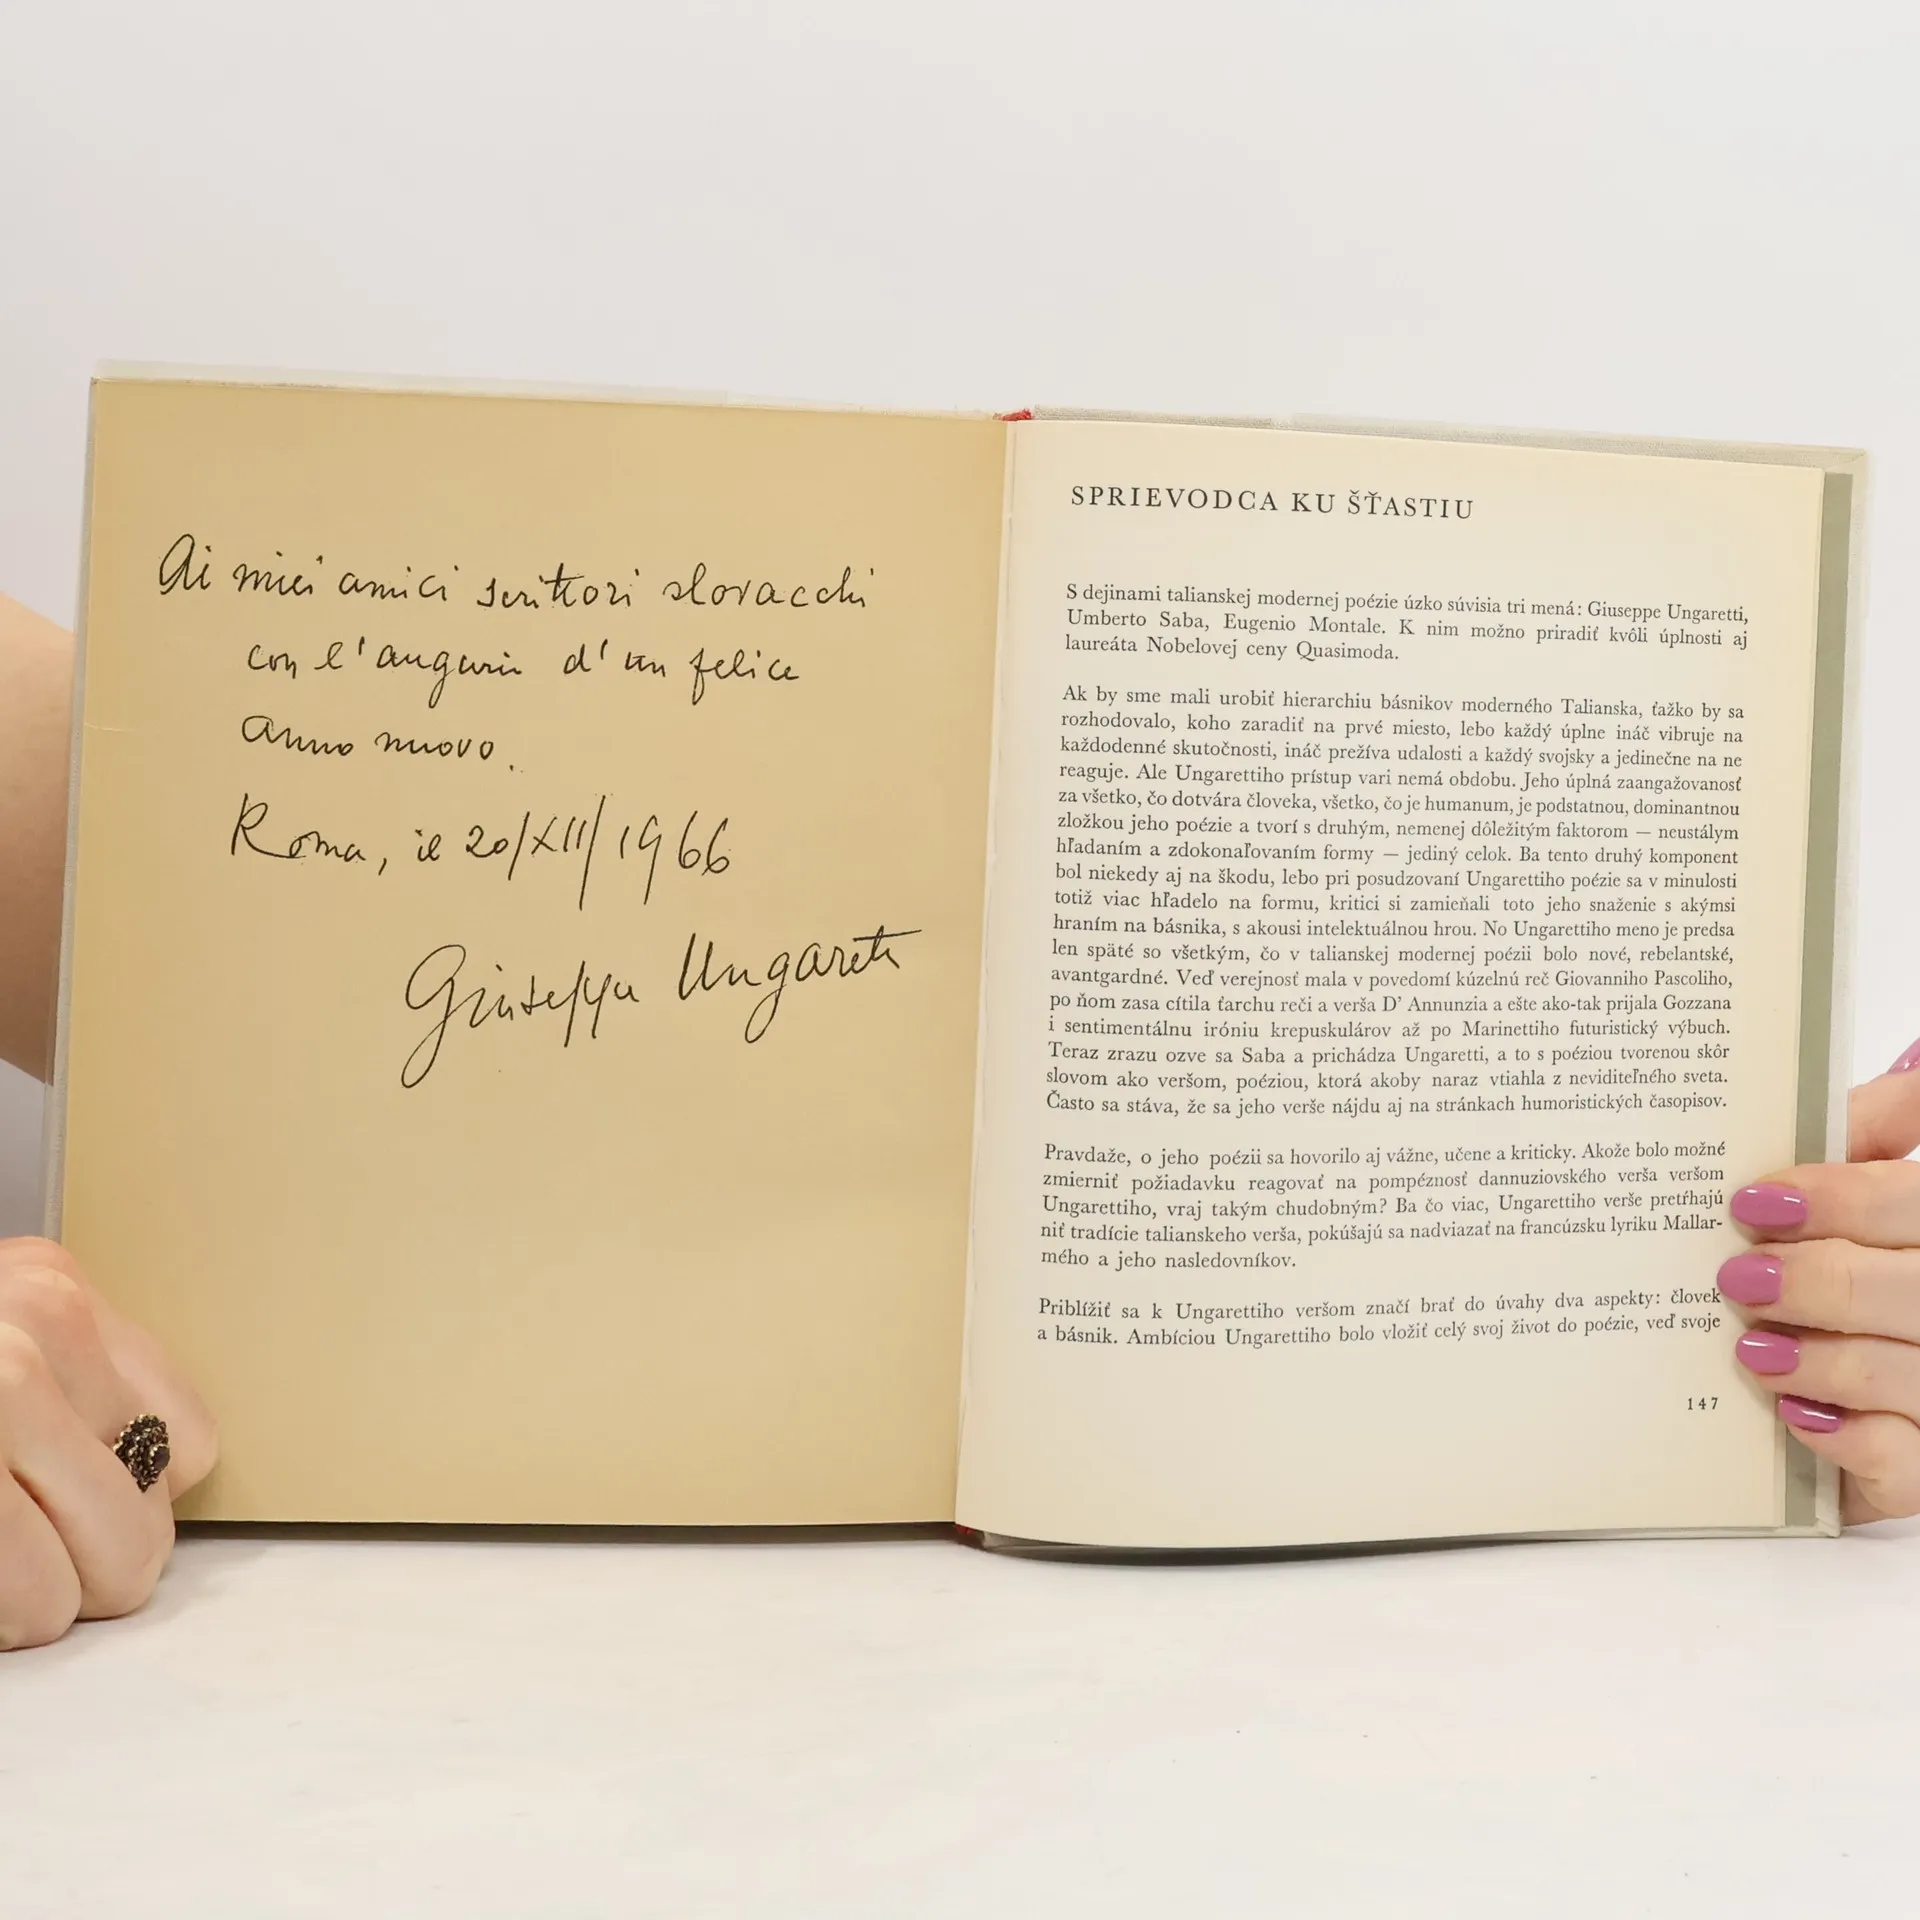 Ai miei amici scrittori slovacchi
con l'augurio d'un felice
anno nuovo.
Roma, il 20/XII/1966
Giuseppe Ungaretti
SPRIEVODCA KU ŠŤASTIU
S dejinami talianskej modernej poézie úzko súvisia tri mená: Giuseppe Ungaretti,
Umberto Saba, Eugenio Montale. K nim možno priradiť kvôli úplnosti aj
laureáta Nobelovej ceny Quasimoda.
Ak by sme mali urobiť hierarchiu básnikov moderného Talianska, ťažko by sa
rozhodovalo, koho zaradiť na prvé miesto, lebo každý úplne ináč vibruje na
každodenné skutočnosti, ináč prežíva udalosti a každý svojsky a jedinečne na ne
reaguje. Ale Ungarettiho prístup vari nemá obdobu. Jeho úplná zaangažovanosť
za všetko, čo dotvára človeka, všetko, čo je humanum, je podstatnou, dominantnou
zložkou jeho poézie a tvorí s druhým, nemenej dôležitým faktorom — neustálym
hľadaním a zdokonaľovaním formy — jediný celok. Ba tento druhý komponent
bol niekedy aj na škodu, lebo pri posudzovaní Ungarettiho poézie sa v minulosti
totiž viac hľadelo na formu, kritici si zamieňali toto jeho snaženie s akýmsi
hraním na básnika, s akousi intelektuálnou hrou. No Ungarettiho meno je predsa
len späté so všetkým, čo v talianskej modernej poézii bolo nové, rebelantské,
avantgardné. Veď verejnosť mala v povedomí kúzelnú reč Giovanniho Pascoliho,
po ňom zasa cítila ťarchu reči a verša D' Annunzia a ešte ako-tak prijala Gozzana
i sentimentálnu iróniu krepuskulárov až po Marinettiho futuristický výbuch.
Teraz zrazu ozve sa Saba a prichádza Ungaretti, a to s poéziou tvorenou skôr
slovom ako veršom, poéziou, ktorá akoby naraz vtiahla z neviditeľného sveta.
Často sa stáva, že sa jeho verše nájdu aj na stránkach humoristických časopisov.
Pravdaže, o jeho poézii sa hovorilo aj vážne, učene a kriticky. Akože bolo možné
zmierniť požiadavku reagovať na pompéznosť dannuziovského verša veršom
Ungarettiho, vraj takým chudobným? Ba čo viac, Ungarettiho verše pretŕhajú
niť tradície talianskeho verša, pokúšajú sa nadviazať na francúzsku lyriku Mallar-
mého a jeho nasledovníkov.
Priblížiť sa k Ungarettiho veršom značí brať do úvahy dva aspekty: človek
a básnik. Ambíciou Ungarettiho bolo vložiť celý svoj život do poézie, veď svoje
147